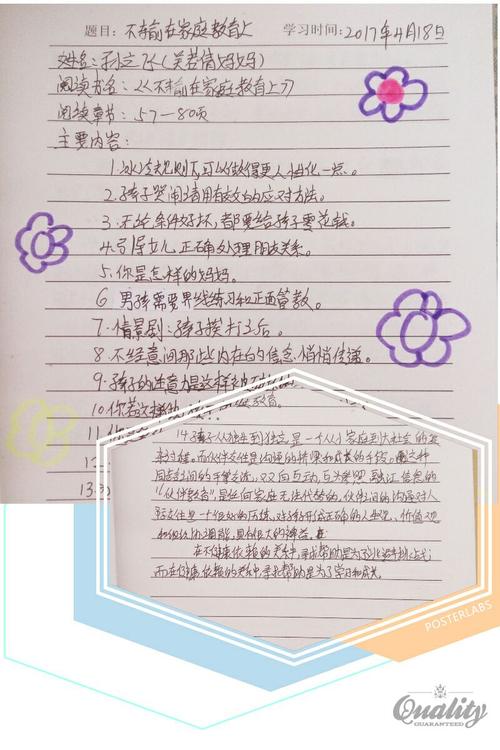 题目：不输在家庭教育上 学习时间：2017年4月18日
姓名：孙立飞（关若倩妈妈）
阅读书名：《不输在家庭教育上》
阅读章书：57—80页
主要内容：
1.冰冷规则下,可以做得更人性化一点。
2.孩子哭闹请用有效的应对方法。
3.无论条件好坏，都要给孩子零花钱。
4.引导女儿正确处理朋友关系。
5.你是怎样的妈妈。
6.男孩需要界线练习和正面管教。
7.情景剧：孩子挨打之后。
8.不经意间那些内在的信念，悄悄传递。
9.孩子的注意力是这样被
10.你若这样 教育。
11.你
12.
13.
14.孩子从独生到独立，是一个从小家庭到大社会的
过程。而伙伴交往是沟通的桥梁和成长的手段。通过这种
同龄之间的平等交流，双向互动，互为
"伙伴教育"，是任何家庭无法代替的，伙伴间的沟通对人
际交往是一个很好的历练，对孩子开启正确的人生观，价值观
和很大的裨益。
在不健康依赖的关系中，寻求帮助是为了
而在健康依赖的关系中，寻求帮助是为了学习和成长。
POSTERLABS
Quality
GUARANTEED